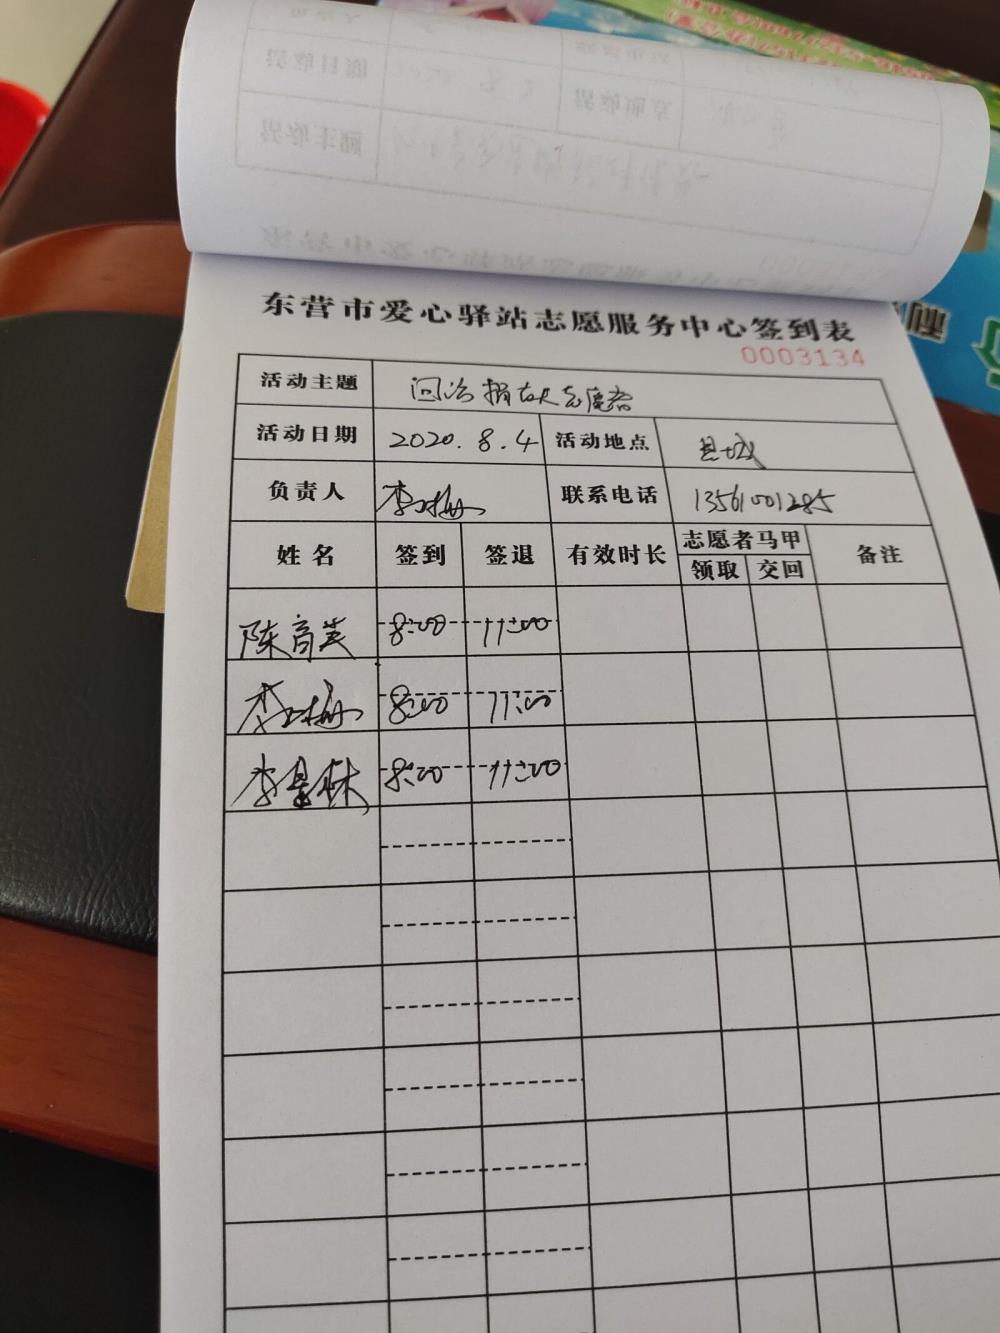 东营市爱心驿站志愿服务中心签到表
0003134
活动主题 捐献志愿者
活动日期 2020.8.4 活动地点 县城
负责人 联系电话 13561001285
姓名 签到 签退 有效时长 志愿者马甲 备注
领取 交回
陈育英 8:00 11:00
8:00 11:00
李景林 8:00 11:00